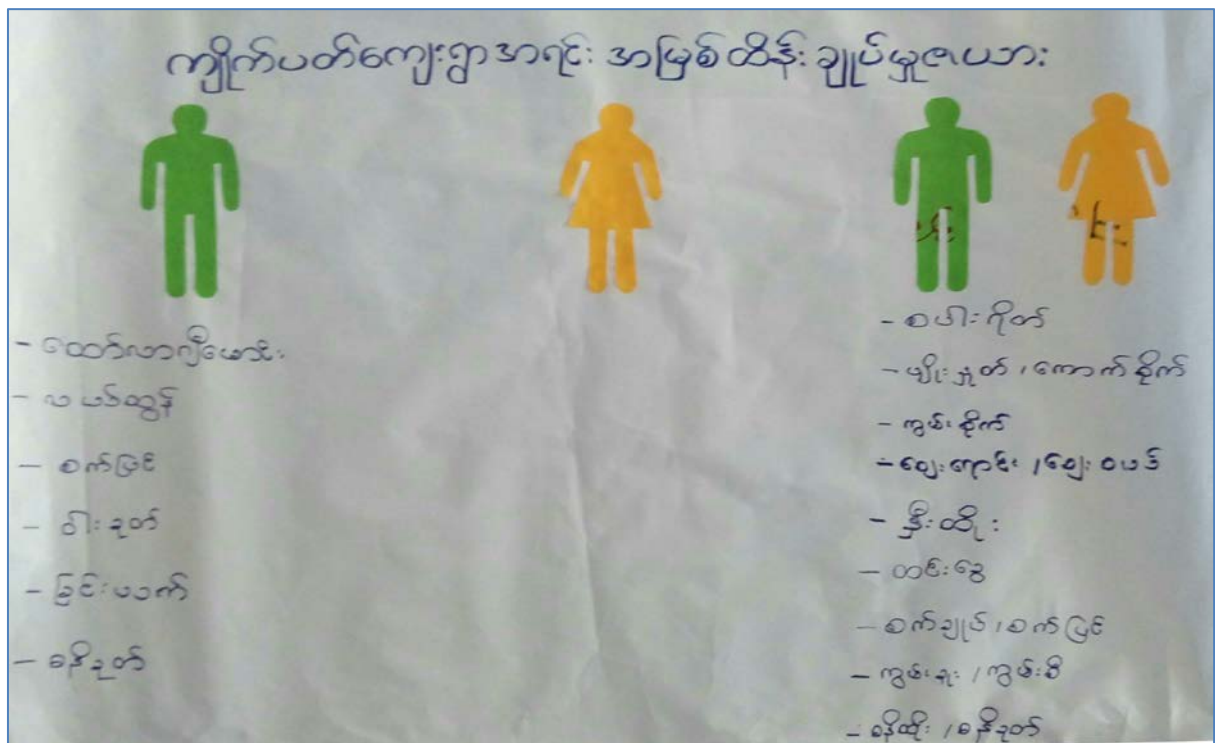 ကျိုက်ပတ်ကျေးရွာအရင်းအမြစ်ထိန်းချုပ်မှုဇယား
- ထော်လာဂျီမောင်း
- လယ်ထွန်
- စက်ပြင်
- ဝါးခုတ်
- ခြင်း
- ဓနိခုတ်
- စပါးရိတ်
- မျိုးနှုတ် ၊ ကောက်စိုက်
- ကွမ်းစိုက်
- ဈေးရောင်း ၊ ဈေးဝယ်
- နှီးထိုး
- တင်းခွေ
- စက်ချုပ် ၊ စက်ပြင်
- ကွမ်းခူး ၊ ကွမ်းစီ
- ဓနိထိုး ၊ ဓနိခုတ်